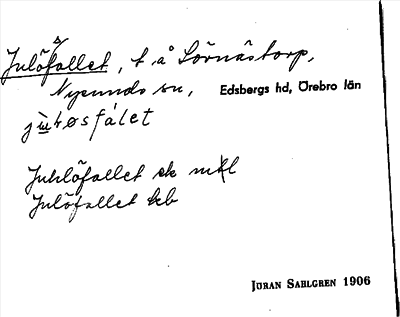 Julöfallet, t å Sörnästorp,
Nysunds sn, Edsbergs hd, Örebro län
Juhlöfallet ek
Julöfallet hkb
JÖRAN SAHLGREN 1906